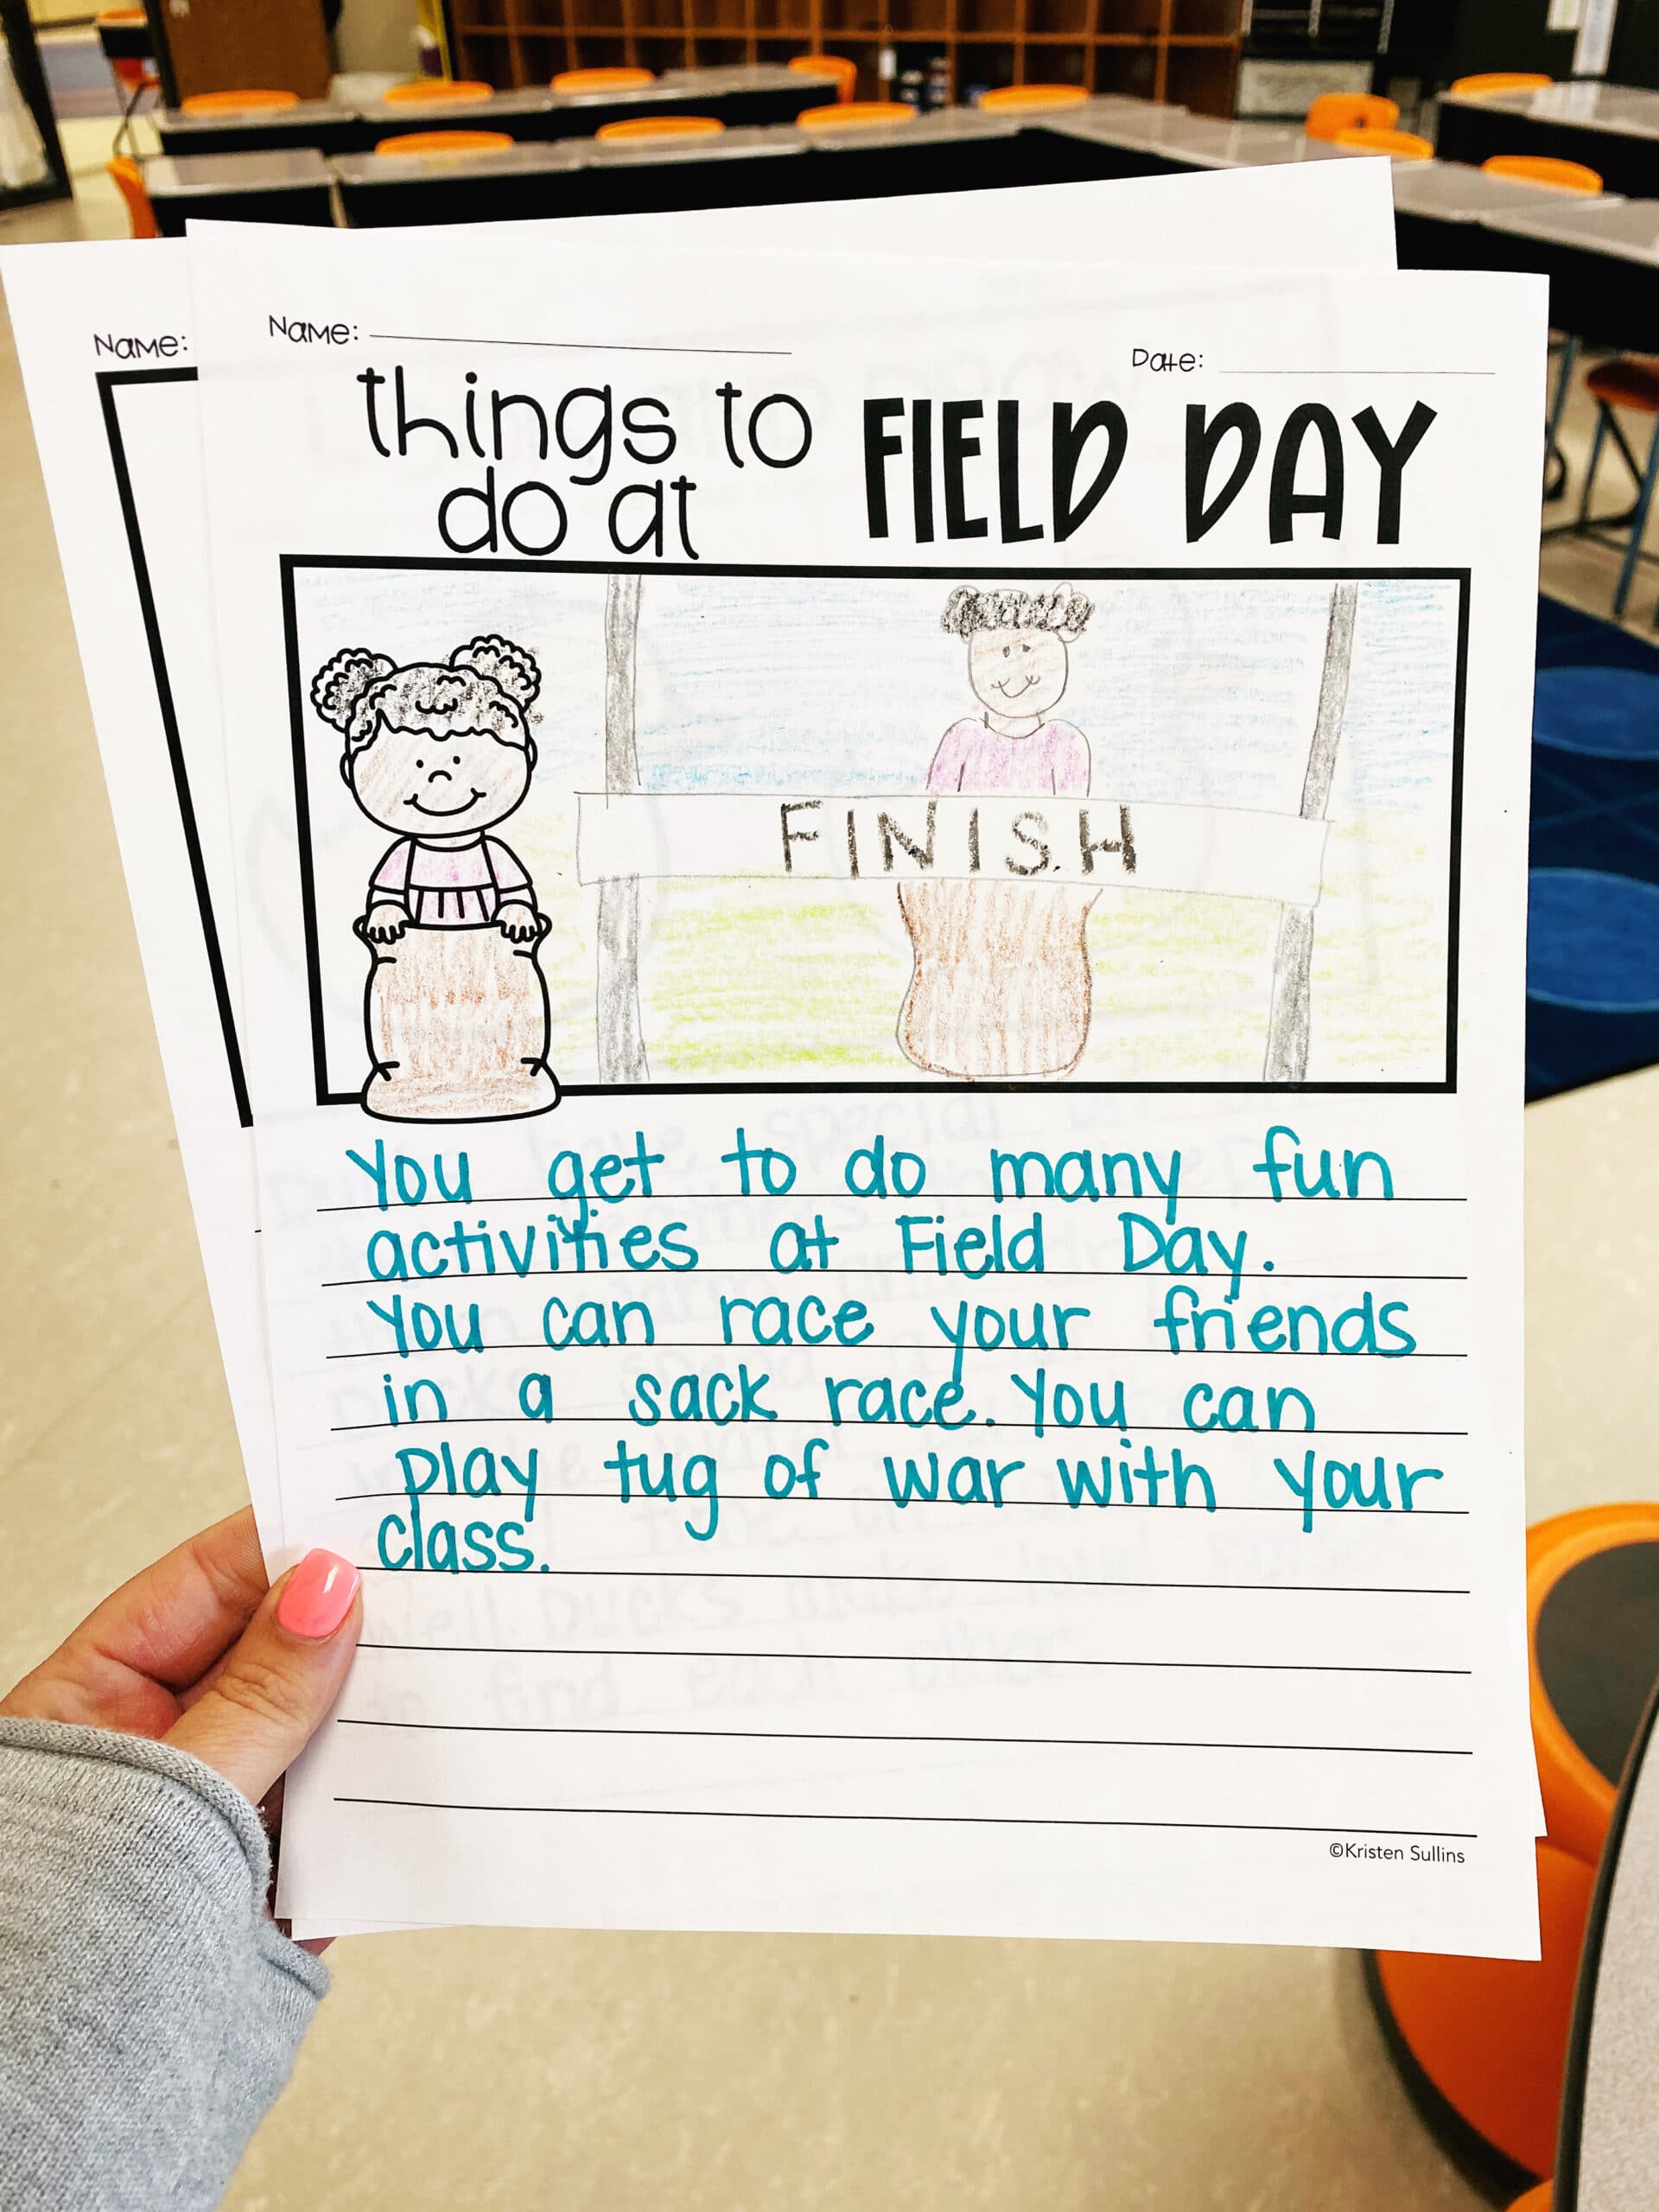 Name:
Name:
Date:
things to
do at
FIELD DAY
FINISH
You get to do many fun
activities at Field Day.
You can race your friends
in a sack race. You can
play tug of war with your
class.
©Kristen Sullins